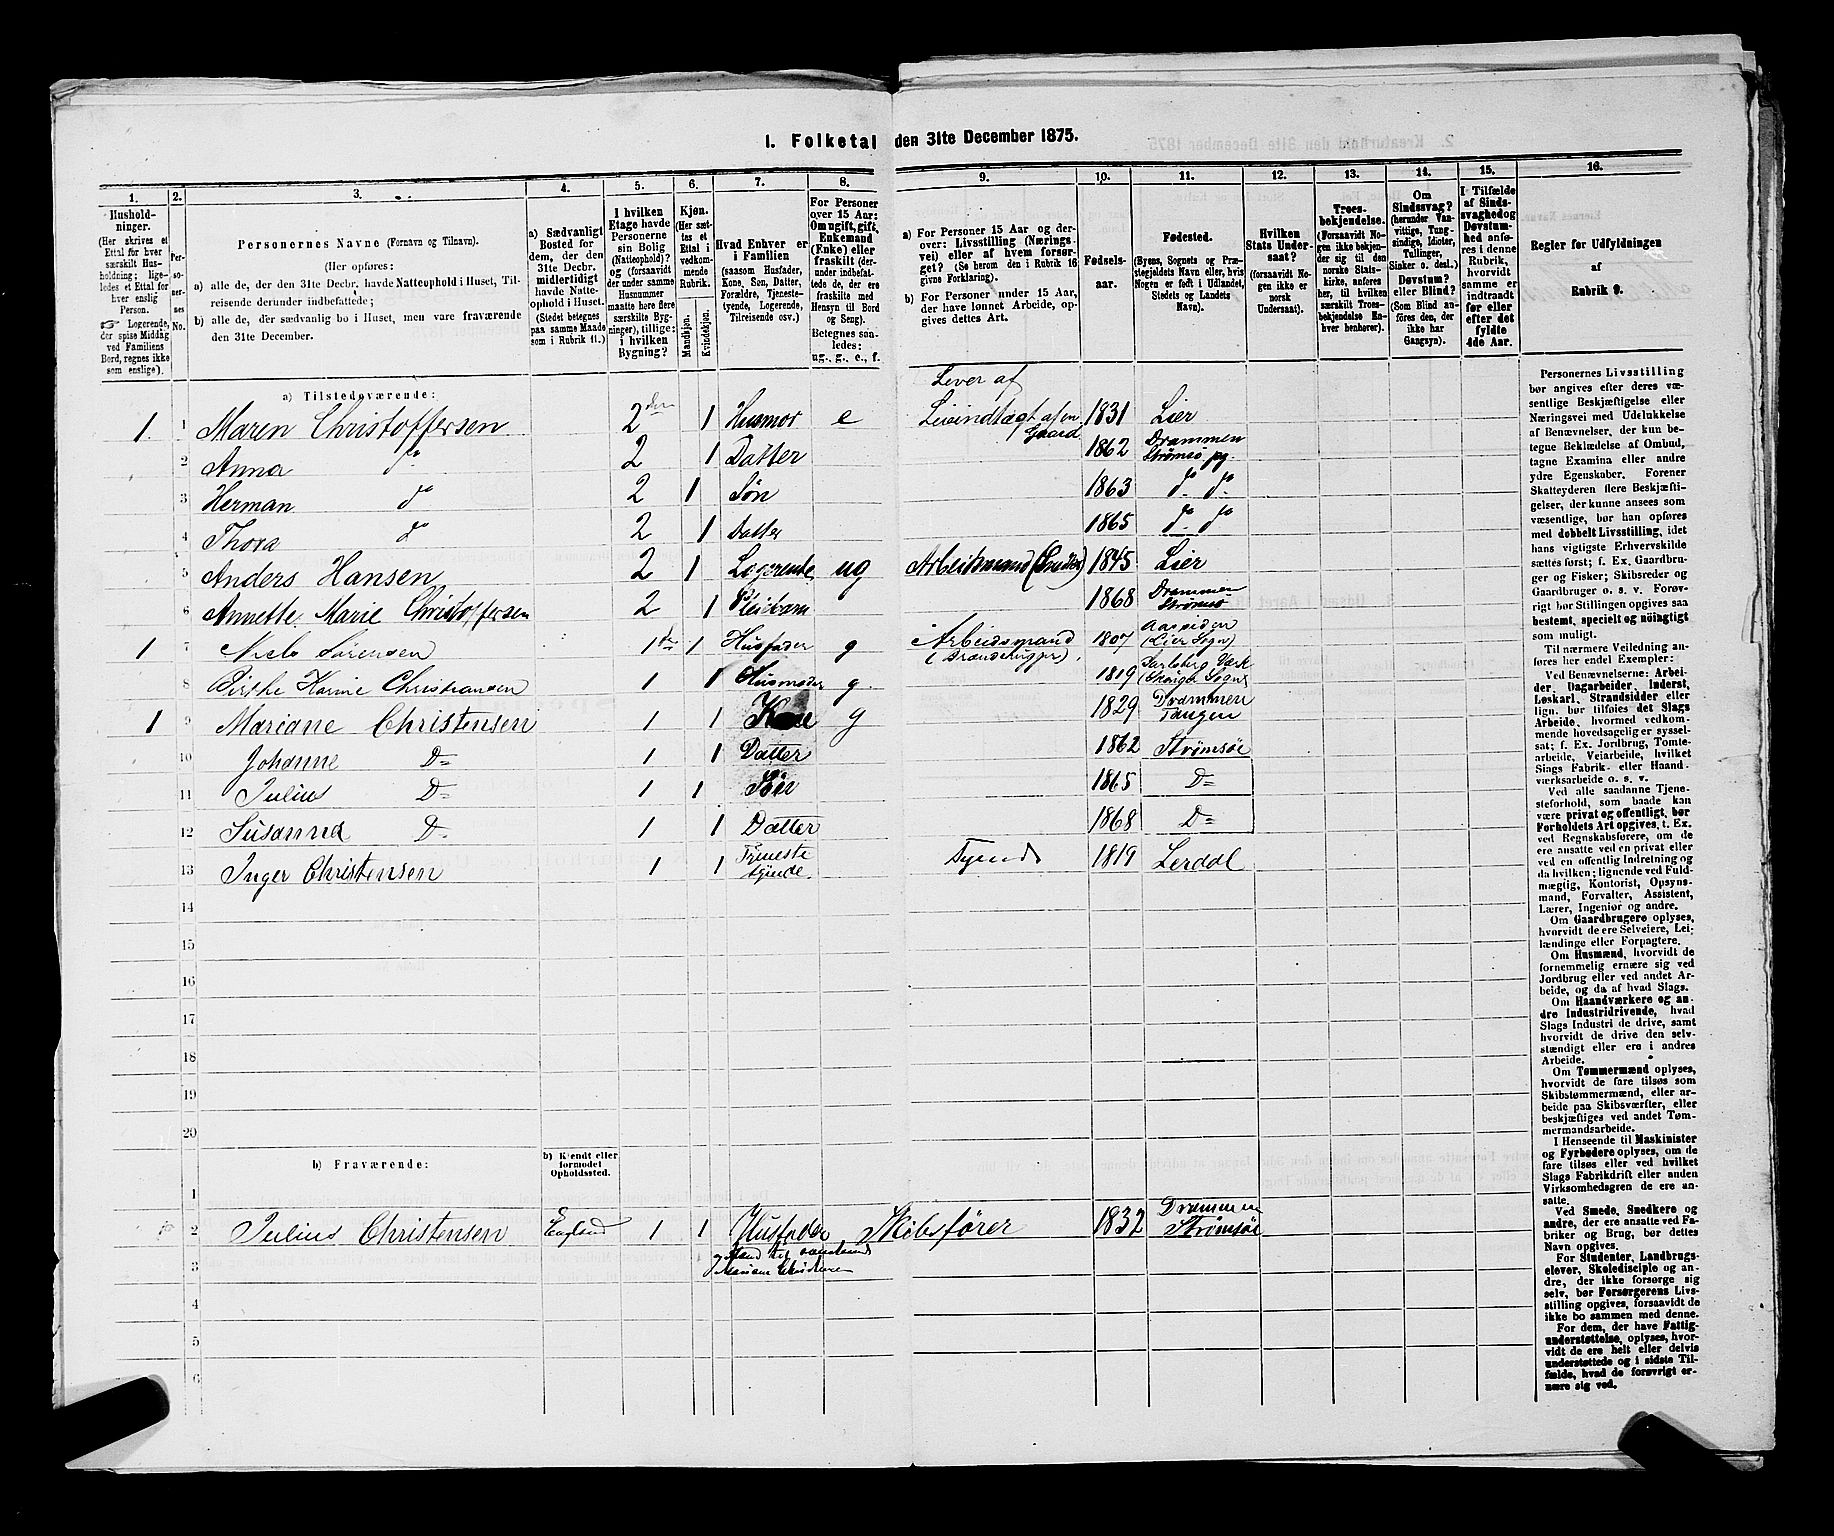 1. Folketal den 31te December 1875.
1. 2. 3. 4. 5. 6. 7. 8. 9. 10. 11. 12. 13. 14. 15. 16.
Husholdninger.
(Her skrives et
Ettal for hver
særskilt Husholdning; ligeledes et Ettal for
hver enslig
Person.
☞ Logerende,
der spise Middag
ved Familiens
Bord, regnes ikke
som enslige).
Personernes No.
Personernes Navne (Fornavn og Tilnavn).
(Her opføres:
a) alle de, der den 31te Decbr. havde Natteophold i Huset, Tilreisende derunder indbefattede;
b) alle de, der sædvanlig bo i Huset, men vare fraværende
den 31te December.
a) Sædvanligt
Bosted for
dem, der den
31te Decbr.
midlertidigt
havde Natteophold i Huset.
(Stedet betegnes
paa samme Maade
som i Rubrik 11.)
I hvilken
Etage havde
Personerne
sin Bolig
(Natteophold)?
og (forsaavidt
der under samme
Husnummer
maatte høre flere
særskilte Bygninger), tillige:
i hvilken
Bygning?
Kjøn.
(Her sættes et
Ettal i
vedkommende
Rubrik.
Mandkjøn.
Kvindekjøn.
Hvad Enhver er
i Familien
(saasom Husfader,
Kone, Søn, Datter,
Forældre, Tjenestetyende, Logerende,
Tilreisende osv.)
For Personer
over 15 Aar:
Om ugift, gift,
Enkemand
(Enke) eller
fraskilt (derunder indbefattede de, der ere
fraskilte med
Hensyn til Bord
og Seng).
Betegnes saaledes:
ug., g., e., f.
a) For Personer 15 Aar og derover: Livsstilling (Næringsvei) eller af hvem forsørget? (Se herom den i Rubrik 16
givne Forklaring).
b) For Personer under 15 Aar,
der have lønnet Arbeide, opgives dettes Art.
Fødselsaar.
Fødested.
(Byens, Sognets og Præstegjeldets Navn eller, hvis
Nogen er født i Udlandet,
Stedets og Landets
Navn).
Hvilken
Stats Undersaat?
(forsaavidt Nogen ikke er
norsk
Undersaat).
Troesbekjendelse.
(Forsaavidt Nogen ikke bekjender sig til den
norske Statskirke, anføres
her, til hvilken
særskilt Troesbekjendelse Enhver henhører).
Om
Sindssvag?
(herunder Vanvittige, Tungsindige, Idioter,
Tullinger,
Sinker o. desl.)
Døvstum?
eller Blind?
(Som Blind anføres den, der
ikke har
Gangsyn).
I Tilfælde
af Sindssvaghed og
Døvstumhed anføres i denne
Rubrik,
hvorvidt
samme er
indtraadt
før eller
efter det
fyldte
4de Aar.
Regler for Udfyldningen
af
Rubrik 9.
a) Tilstedeværende:
1. 1 Maren Christoffersen 2den 1 Husmor e Lever af Leieindtægt af en Gaard 1831 Lier
2 Anna do 2 1 Datter 1862 Drammen Strømsø pg.
3 Herman do 2 1 Søn 1863 do do
4 Thora do 2 1 Datter 1865 do do
5 Anders Hansen 2 1 Logerende ug Arbeidsmand 1845 Lier
6 Annette Marie Christoffersen 2 1 Pleiebarn 1868 Drammen Strømsø
1 7 Niels Sørensen 1ste 1 Husfader g Arbeidsmand 1807 (Lier Sogn)
8 Birthe Karine Christiansen 1 1 Husmoder g. 1819 Jarlsberg Værk
1 9 Mariane Christensen 1 1 Kone g 1829 Drammen Tangen
10 Johanne Do 1 1 Datter 1862 Strømsøe
11 Julius Do 1 1 Søn 1865 Do
12 Susanna Do 1 1 Datter 1868 Do
13 Inger Christensen 1 1 Tjeneste tyende. Tyende 1819 Lerdal
14
15
16
17
18
19
20
b) Fraværende:
b) Kjendt eller
formodet
Opholdssted.
1
2 Julius Christensen England 1 1 Husfader Skibsfører 1832 Drammen Strømsøe
3 Mariane Christensen
4
5
6
Personernes Livsstilling
bør angives efter deres væsentlige Beskjæftigelse eller
Næringsvei med Udelukkelse
af Benævnelser, der kun betegne Beklædelse af Ombud,
tagne Examina eller andre
ydre Egenskaber. Forener
Skatteyderen flere Beskjæftigelser, der kunne ansees som
væsentlige, bør han opføres
med dobbelt Livsstilling, idet
hans vigtigste Erhvervskilde
sættes først; f. Ex. Gaardbruger og Fisker; Skibsreder og
Gaardbruger o. s. v. Forøvrigt bør Stillingen opgives saa
bestemt, specielt og nöiagtigt
som muligt.
Til nærmere Veiledning anføres her endel Exempler:
Ved Benævnelserne: Arbeider, Dagarbeider, Inderst,
Løskarl, Strandsidder eller
lign. bør tilføies det Slags
Arbeide, hvormed vedkommende hovedsagelig er sysselsat; f. Ex. Jordbrug, Tomtearbeide, Veiarbeide, hvilket
Slags Fabrik- eller Haandværksarbeide o. s. v.
Ved alle saadanne Tjenesteforhold, som baade kan
være privat og offentligt, bør
Forholdets Art opgives, t. Ex.
ved Regnskabsførere, om de
ere ansatte ved en privat eller
ved en offentlig Indretning og
da hvilken; lignende ved Fuldmægtig, Kontorist, Opsynsmand, Forvalter, Assistent,
Lærer, Ingeniør og andre.
Om Gaardbrugere oplyses,
hvorvidt de ere Selveiere, Leilændinge eller Forpagtere.
Om Husmænd, hvorvidt de
fornemmelig ernære sig ved
Jordbrug eller ved andet Arbeide, og da af hvad Slags.
Om Haandværkere og andre Industridrivende, hvad
Slags Industri de drive, samt
hvorvidt de drive den selvstændigt eller ere i andres
Arbeide.
Om Tømmermænd oplyses,
hvorvidt de fare tilsøs som
Skibstømmermænd, eller arbeide paa Skibsværfter, eller
beskjæftiges ved andet Tømmermandsarbeide.
I Henseende til Maskinister
og Fyrbødere oplyses, om de
fare tilsøs eller ved hvilket
Slags Fabrikdrift eller anden
Virksomhedsgren de ere ansatte.
Ved Smede, Snedkere og
andre, der ere ansatte ved Fabriker og Brug, bør dettes
Navn opgives.
For Studenter, Landbrugselever, Skoledisciple og andre, der ikke forsørge sig
selv, bør Forsørgerens Livsstilling opgives, forsaavidt de
ikke bo sammen med denne.
For dem, der have Fattigunderstøttelse, oplyses, hvorvidt de ere helt eller delvis
understøttede og i sidste Tilfælde, hvad de forøvrigt ernære sig ved.